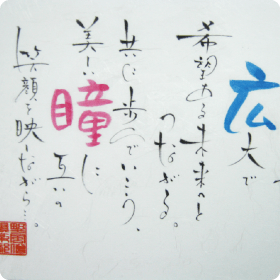 広大で
希望ある未来へと
つながる。
共に歩んでいこう、
美しい瞳に
互いの
笑顔を映しながら…。